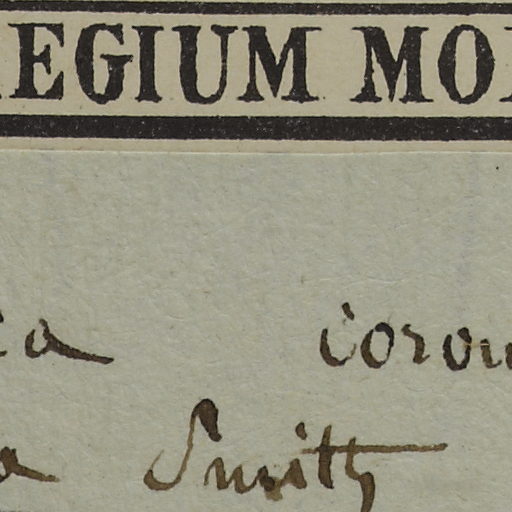 REGIUM MO
ca coron
a Smith